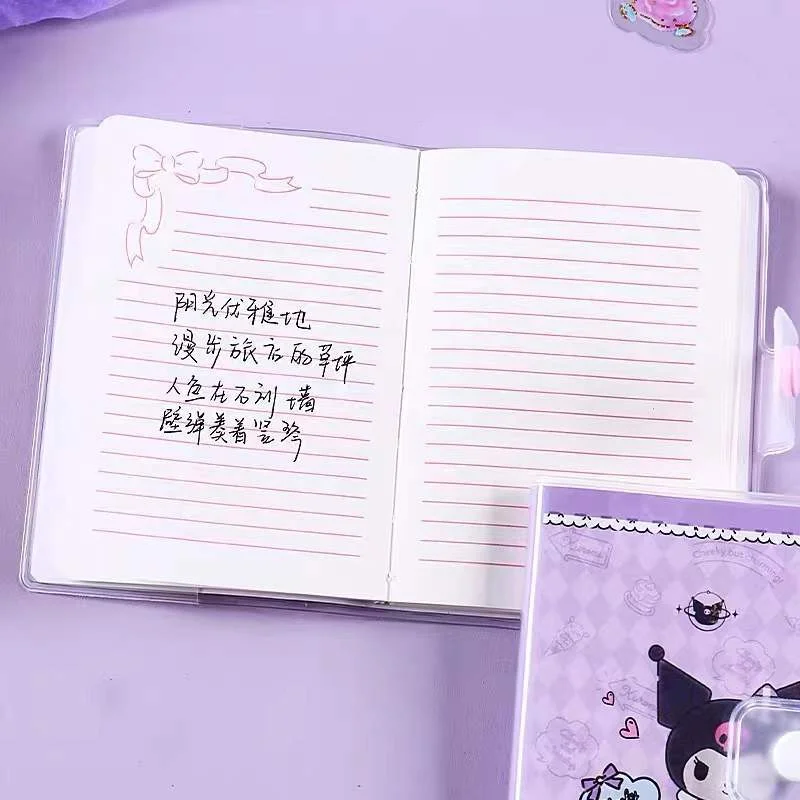 阳光优雅地
漫步旅店的草坪
人鱼在石刻墙
壁弹奏着竖琴
Kuromi
Cheeky, but charming!
Kuromi